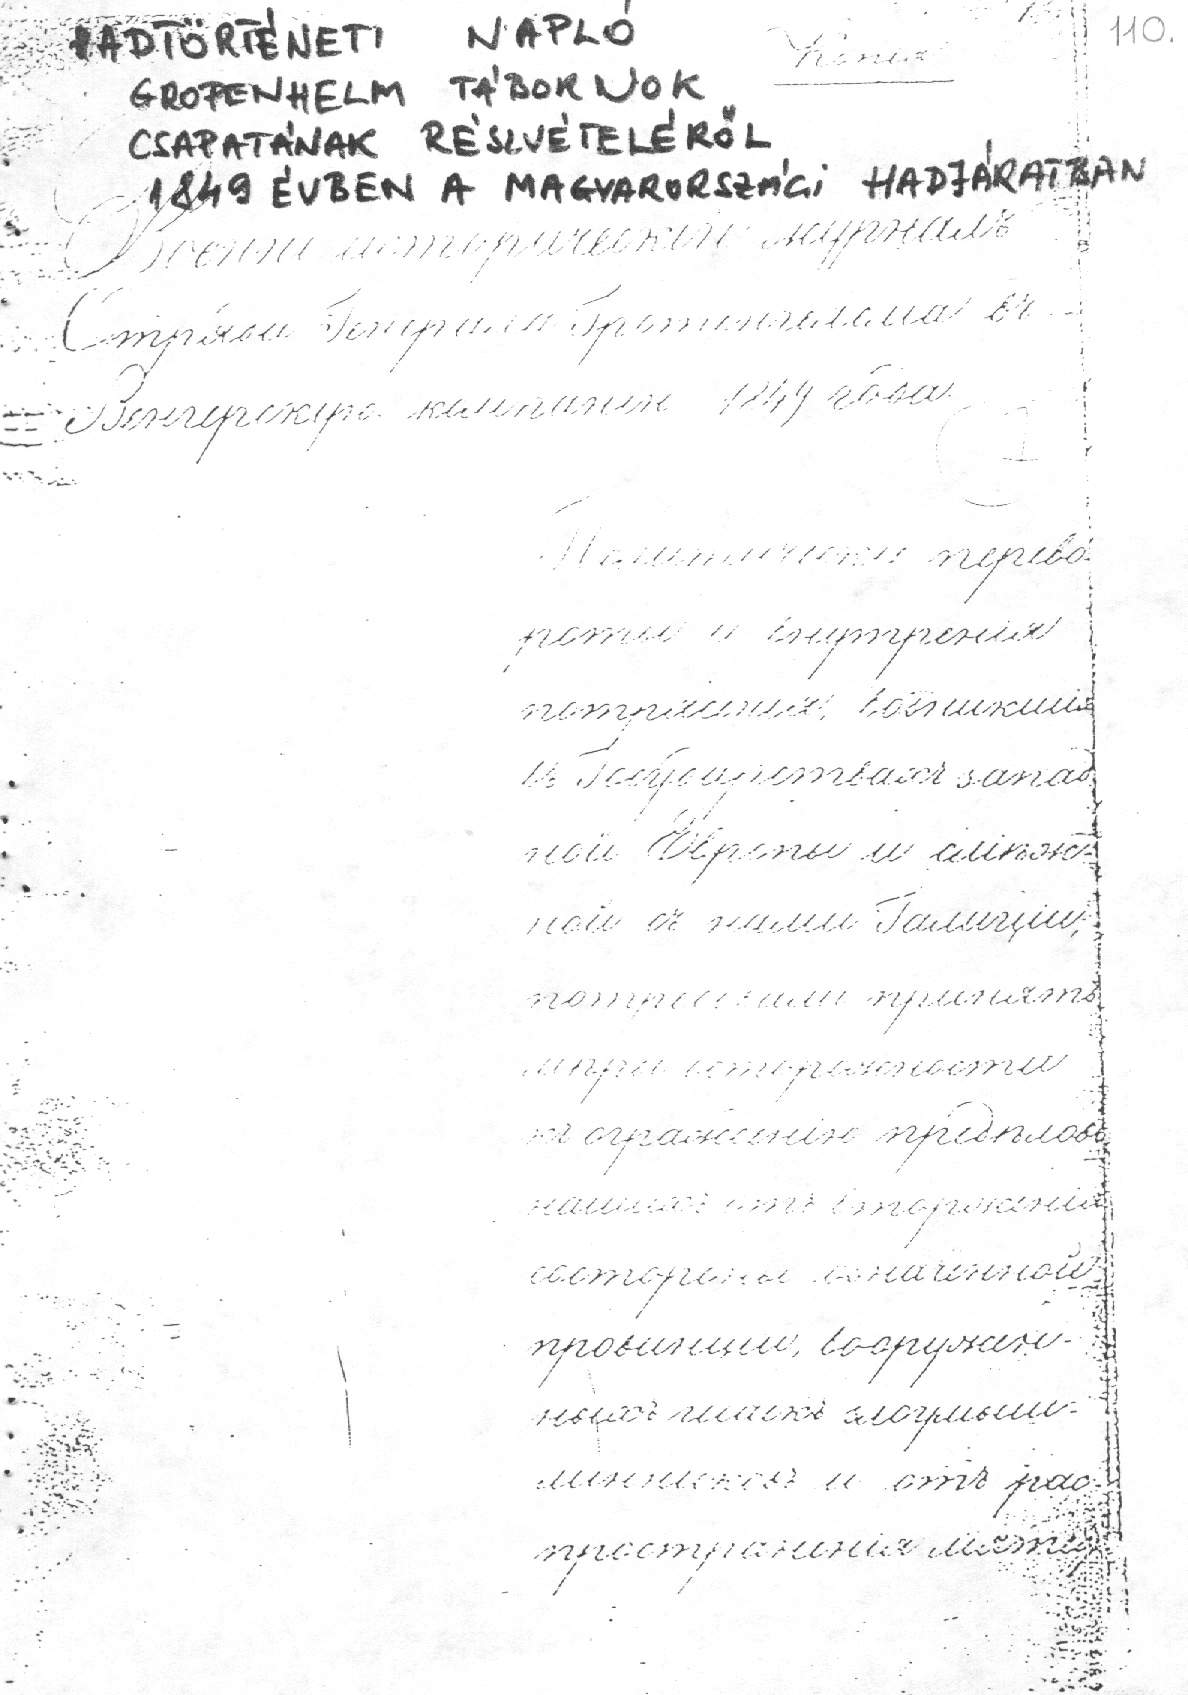 HADTÖRTÉNETI NAPLÓ
110.
Копія
GROTENHELM TÁBORNOK
CSAPATÁNAK RÉSZVÉTELÉRŐL
1849 ÉVBEN A MAGYARORSZÁGI HADJÁRATBAN
Военно исторической журналъ
Отряда Генерала Гротенгельма въ
Венгерскую кампанию 1849 года
1
Политически перево-
роты и внутрения
потрясения, возникшия
въ Государствахъ запад
ной Европы и смѣж-
ной съ ними Галиціи,
принять
мѣры осторожности
къ ограждению предѣловъ
нашихъ отъ вторжения
состороны означенной
провинции, вооружен-
ныхъ шаекъ злоумыш-
ленниковъ и отъ рас-
пространения мяте